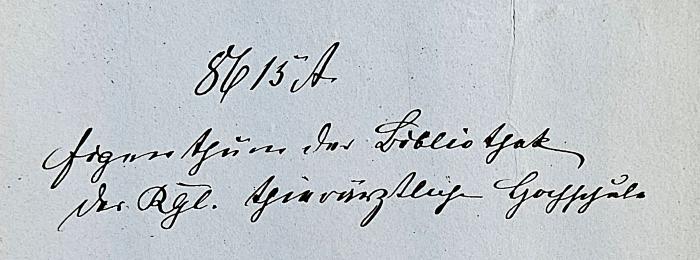 8615 A
Eigenthum der Bibliothek
der Kgl. thierärztlichen Hochschule